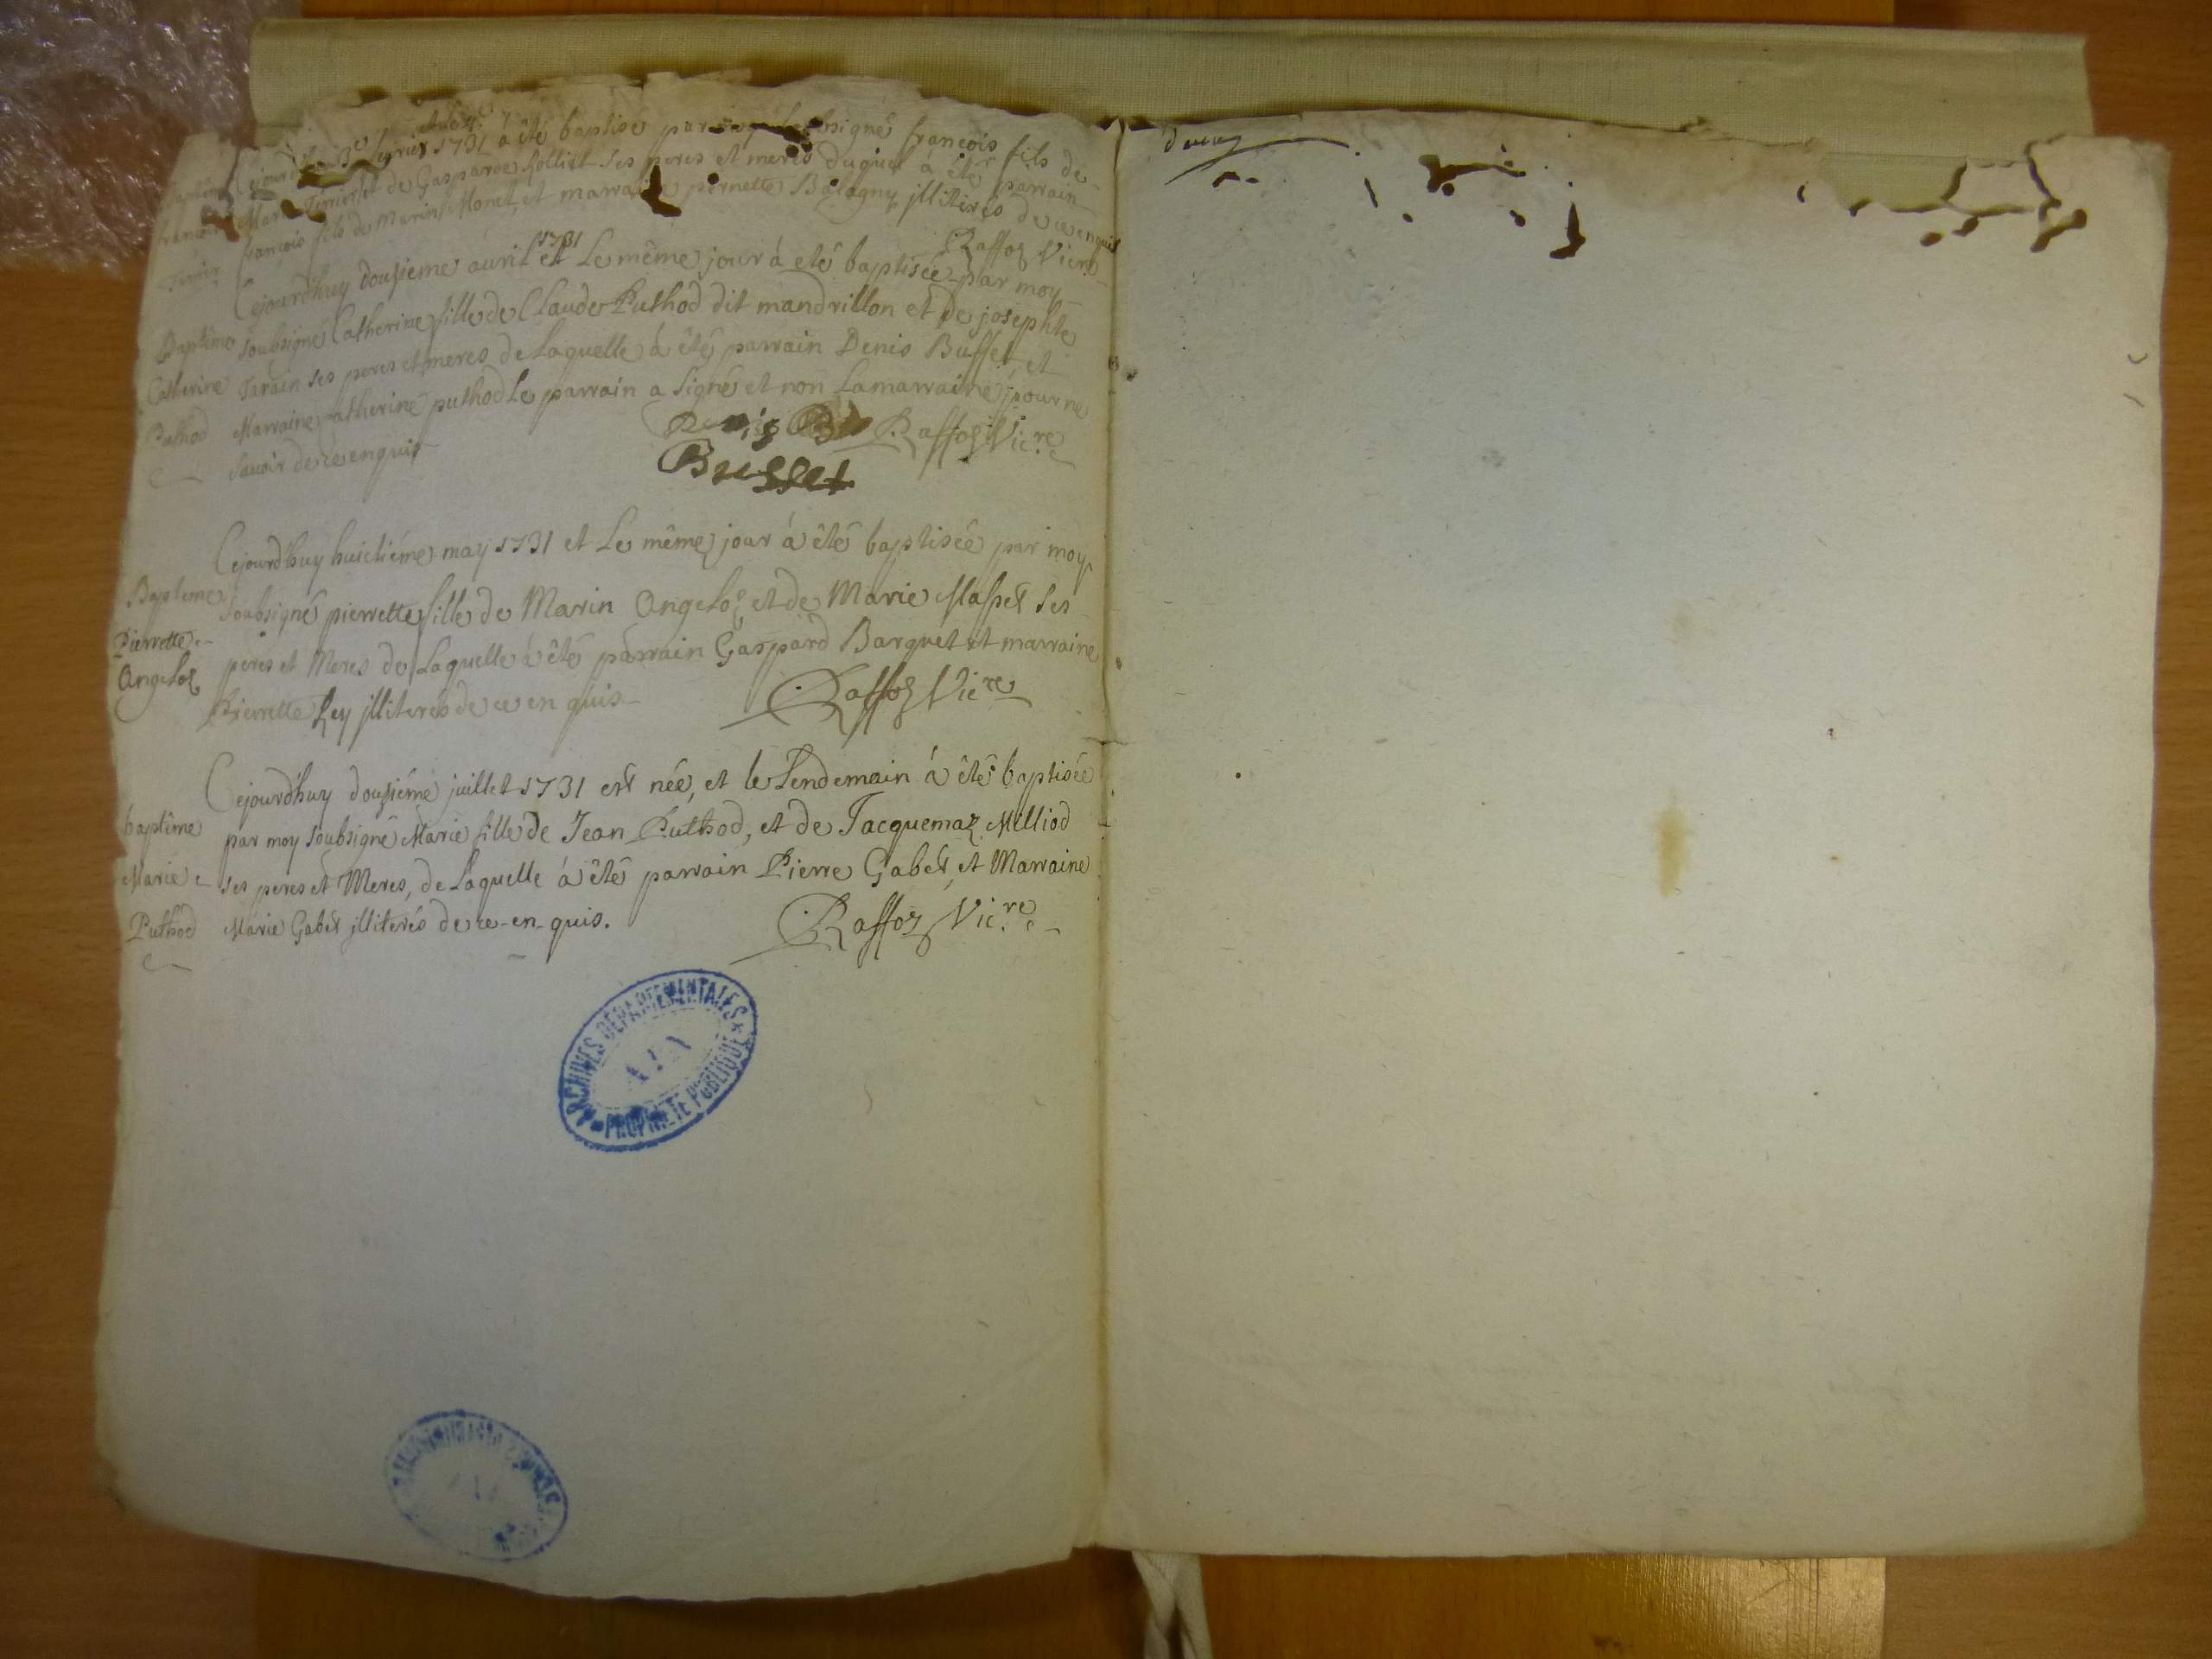 Cejourd'huy fevrier 1731 à êté baptisé par soubsigné françois fils de
Marin Terrier et de Gasparde folliet ses peres et meres duquel à êté parrain
françois fils de Marin Monet, et marraine pernette Balagny jlliterés de ce enquis
Raffoz Vicre
Cejourd'huy dousieme avril 1731 et Le même jour à etê baptisée par moy
Baptême soubsigné Catherine fille de Claude Puthod dit mandrillon et de josephte
Catherine Tarain ses peres et meres de Laquelle à êté parrain Denis Buffet, et
Puthod Marraine Catherine puthod Le parrain a signé et non la marraine pour ne
savoir de ce enquis
Denis Raffoz Vicre
Buffet
Cejourd'huy huictiéme may 1731 et Le même jour à êté baptisée par moy
Bapteme soubsigné pierrette fille de Marin Angeloz et de Marie Masset ses
Pierrette peres et Meres de Laquelle à êté parrain Gaspard Barquet et marraine
Angeloz Pierrette Rey jlliterés de ce en quis
Raffoz Vicre
Cejourd'huy dousiéme juillet 1731 est née, et le Lendemain à êté baptisée
baptême par moy soubsigné Marie fille de Jean Puthod, et de Jacquemaz Milliod
Marie ses peres et Meres, de Laquelle à êté parrain Pierre Gabet, et Marraine
Puthod Marie Gabet jlliterés de ce-en-quis.
Raffoz Vicre
ARCHIVES DÉPARTEMENTALES
PROPRIÉTÉ PUBLIQUE